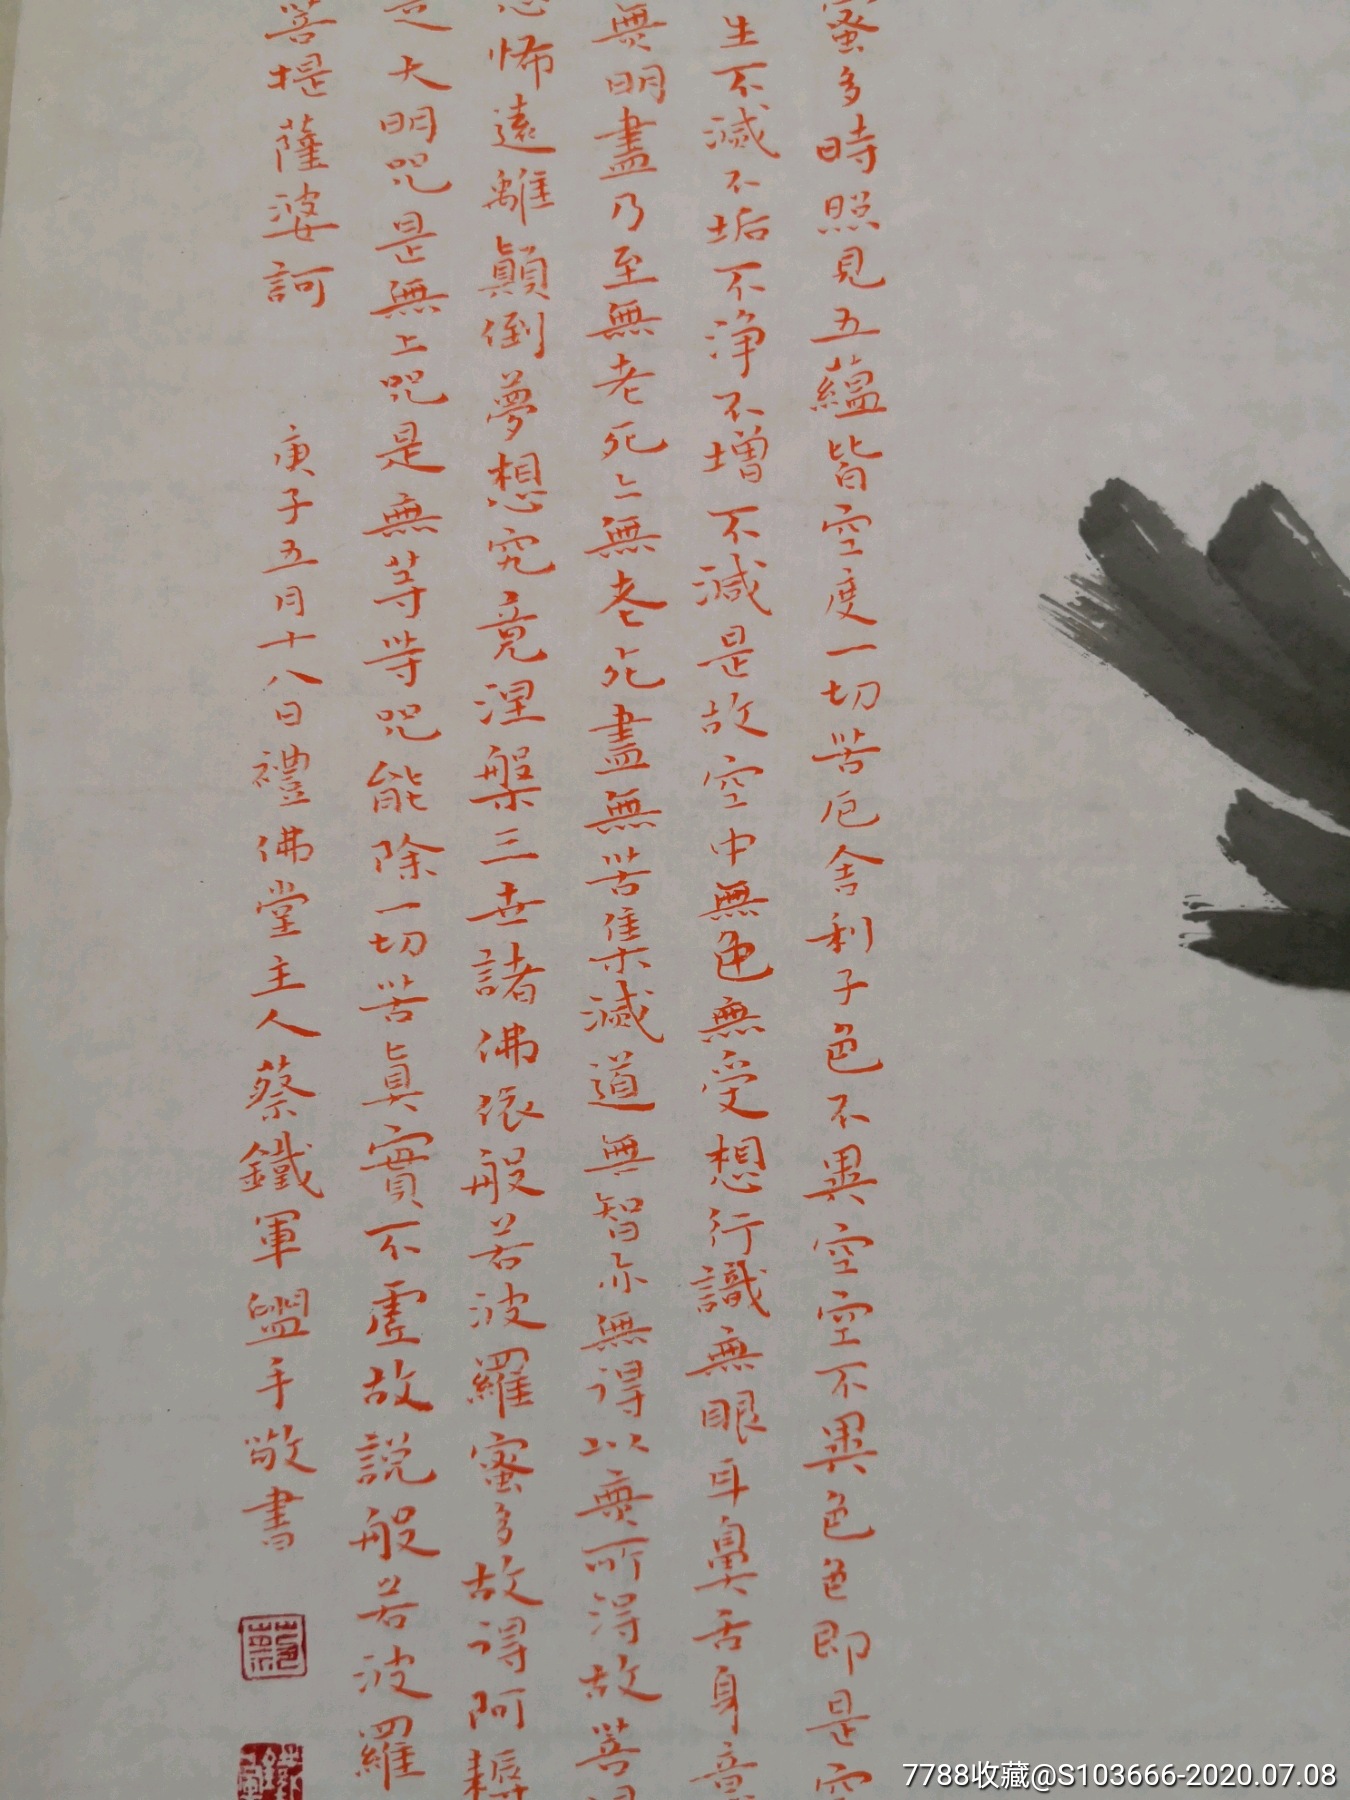 蜜多時照見五蘊皆空度一切苦厄舍利子色不異空空不異色色即是空
生不滅不垢不淨不增不減是故空中無色無受想行識無眼耳鼻舌身意
無明盡乃至無老死亦無老死盡無苦集滅道無智亦無得以無所得故菩提
恐怖遠離顛倒夢想究竟涅槃三世諸佛依般若波羅蜜多故得阿耨
是大明咒是無上咒是無等等咒能除一切苦真實不虛故說般若波羅
菩提薩婆訶 庚子五月十八日禮佛堂主人蔡鐵軍盥手敬書
7788收藏@S103666-2020.07.08